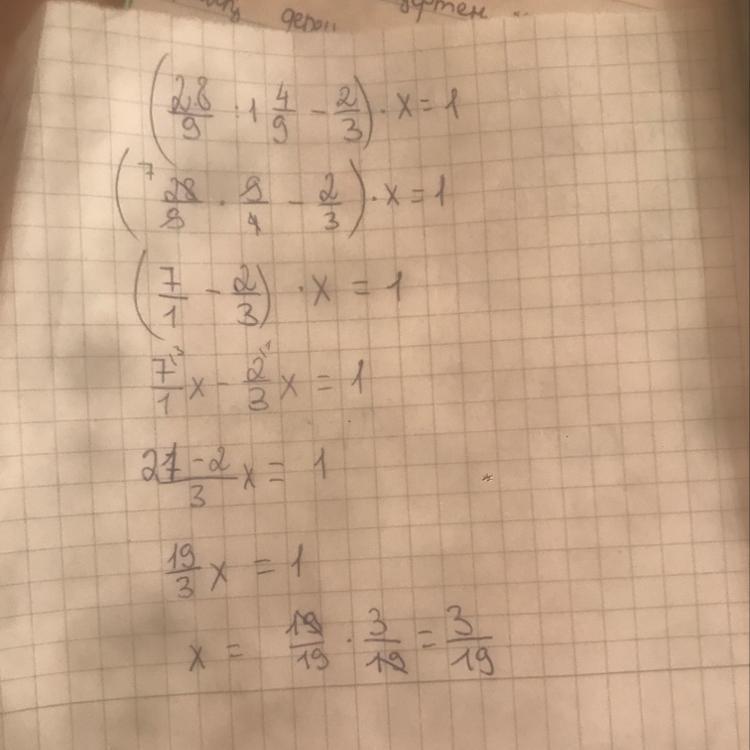 (28/9 : 1 4/9 - 2/3) · x = 1
(⁷ 28/9 · 9/4 - 2/3) · x = 1
(7/1 - 2/3) · x = 1
7\³/1 x - 2\¹/3 x = 1
21 - 2/3 x = 1
19/3 x = 1
x = 19/19 · 3/19 = 3/19